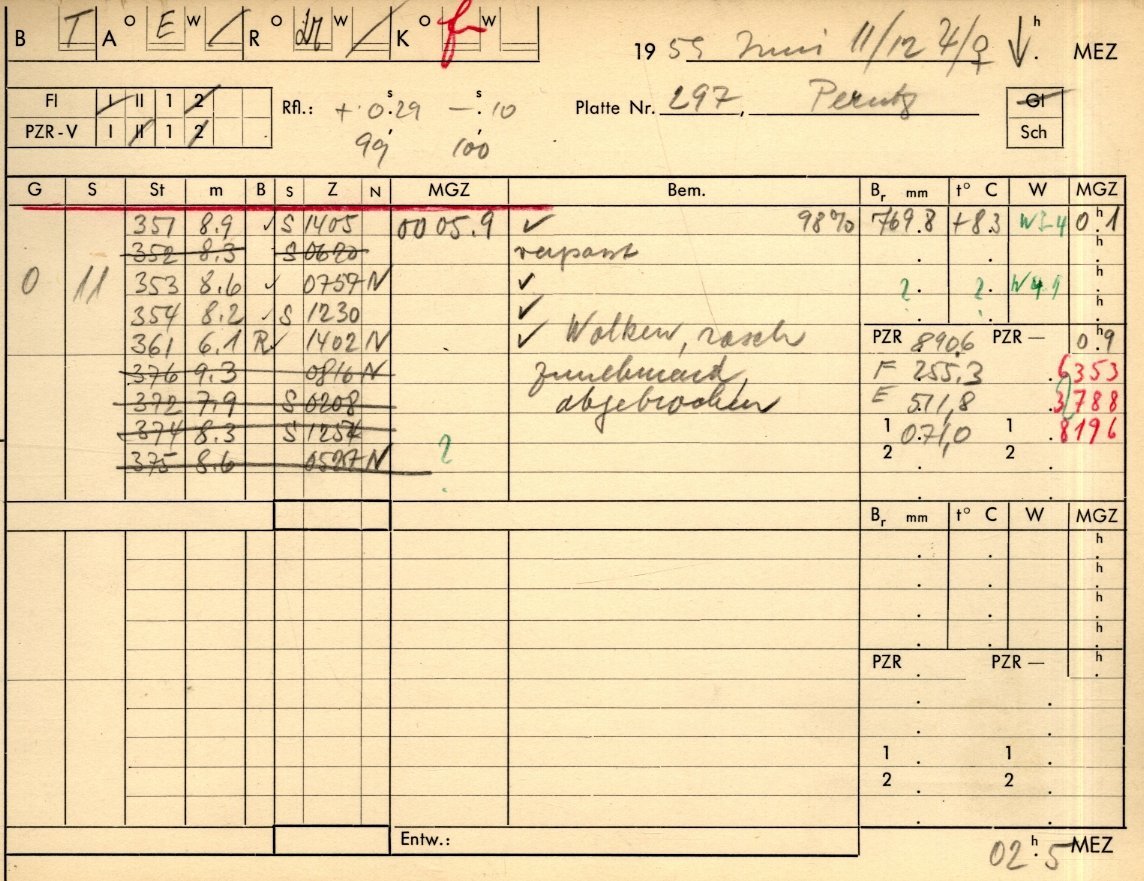 B T A O E W R O W K O f W
19 55 Juni 11/12 ♃/♀ h MEZ
Fl I II 1 2 Rfl.: + 0.29 s — .10 s Platte Nr. 297, Perutz Gl
PZR-V I II 1 2 99 100 Sch
G S St m B S Z N MGZ Bem. Br mm t° C W MGZ
351 8.9 ✓ S 1405 00 05.9 ✓ 98% 769.8 +8.3 W3-4 0h.1
352 8.3 S 0620 verpasst
0 11 353 8.6 ✓ 0757 N ✓ ? ?
354 8.2 ✓ S 1230 ✓
361 6.1 R✓ 1402 N ✓ Wolken, rasch PZR 890.6 PZR — 0h.9
376 9.3 0816 N zunehmend, F 255.3 6353
372 7.9 S 0208 abgebrochen E 511,8 3788
374 8.3 S 1254 1 071,0 1 8196
375 8.6 0527 N ? 2 2
Br mm t° C W MGZ
h
h
h
h
PZR PZR — h
1 1
2 2
Entw.:
02h.5 MEZ